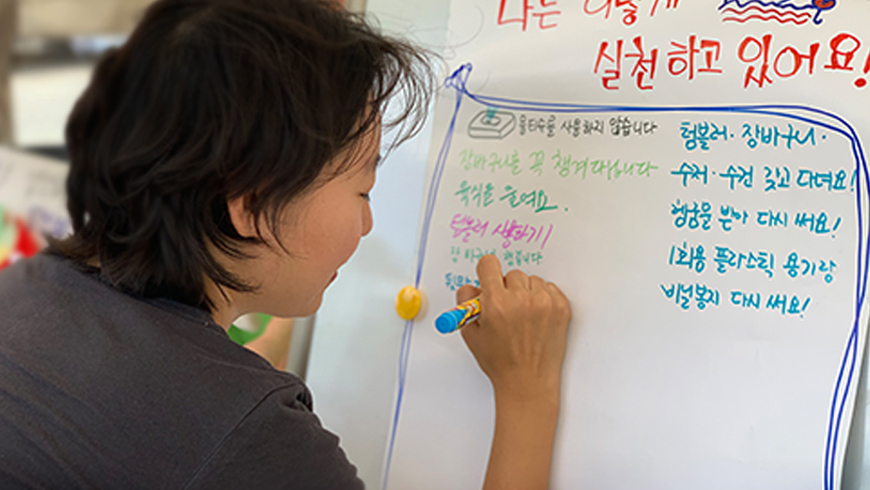 나는 이렇게
실천하고 있어요!
물티슈를 사용하지 않습니다
장바구니를 꼭 챙겨다닙니다
육식을 줄여요.
텀블러 사용하기!
장바구니 챙깁니다
텀블러·장바구니·
수저·수건 갖고 다녀요!
헹굼물 받아 다시 써요!
1회용 플라스틱 용기랑
비닐봉지 다시 써요!